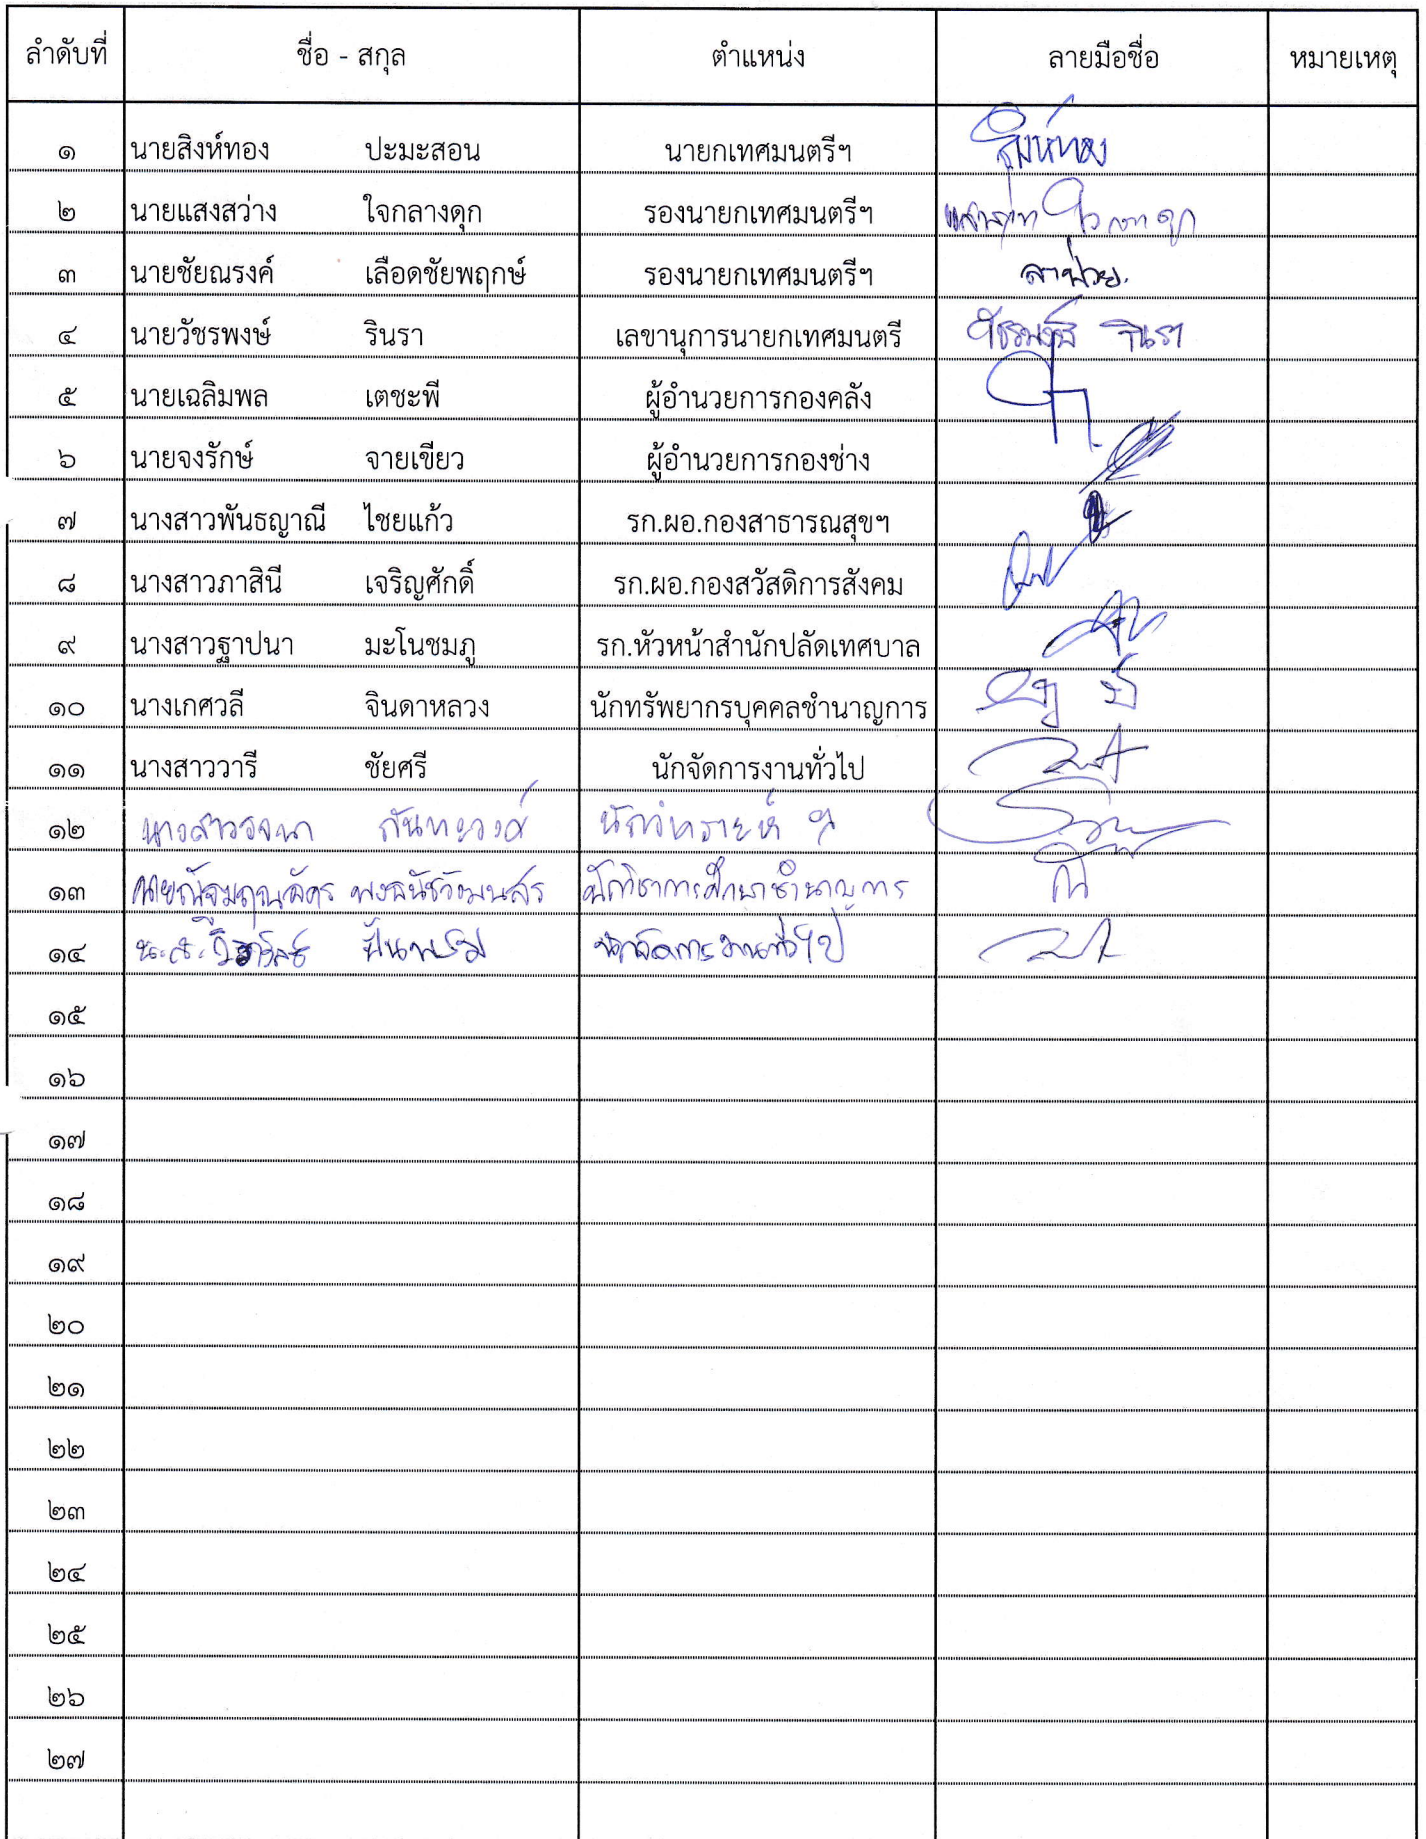 ลำดับที่ ชื่อ - สกุล ตำแหน่ง ลายมือชื่อ หมายเหตุ
๑ นายสิงห์ทอง ปะมะสอน นายกเทศมนตรีฯ สิงห์ทอง
๒ นายแสงสว่าง ใจกลางดุก รองนายกเทศมนตรีฯ
๓ นายชัยณรงค์ เลือดชัยพฤกษ์ รองนายกเทศมนตรีฯ ลาป่วย.
๔ นายวัชรพงษ์ รินรา เลขานุการนายกเทศมนตรี วัชรพงษ์ รินรา
๕ นายเฉลิมพล เตชะพี ผู้อำนวยการกองคลัง
๖ นายจงรักษ์ จายเขียว ผู้อำนวยการกองช่าง
๗ นางสาวพันธญาณี ไชยแก้ว รก.ผอ.กองสาธารณสุขฯ
๘ นางสาวภาสินี เจริญศักดิ์ รก.ผอ.กองสวัสดิการสังคม
๙ นางสาวฐาปนา มะโนชมภู รก.หัวหน้าสำนักปลัดเทศบาล
๑๐ นางเกศวลี จินดาหลวง นักทรัพยากรบุคคลชำนาญการ
๑๑ นางสาววารี ชัยศรี นักจัดการงานทั่วไป
๑๒ นางสาวรจนา กันทะวงศ์ นักวิเคราะห์ ฯ
๑๓ นักวิชาการศึกษาชำนาญการ
๑๔ น.ส. ปันพรม นักจัดการงานทั่วไป
๑๕
๑๖
๑๗
๑๘
๑๙
๒๐
๒๑
๒๒
๒๓
๒๔
๒๕
๒๖
๒๗